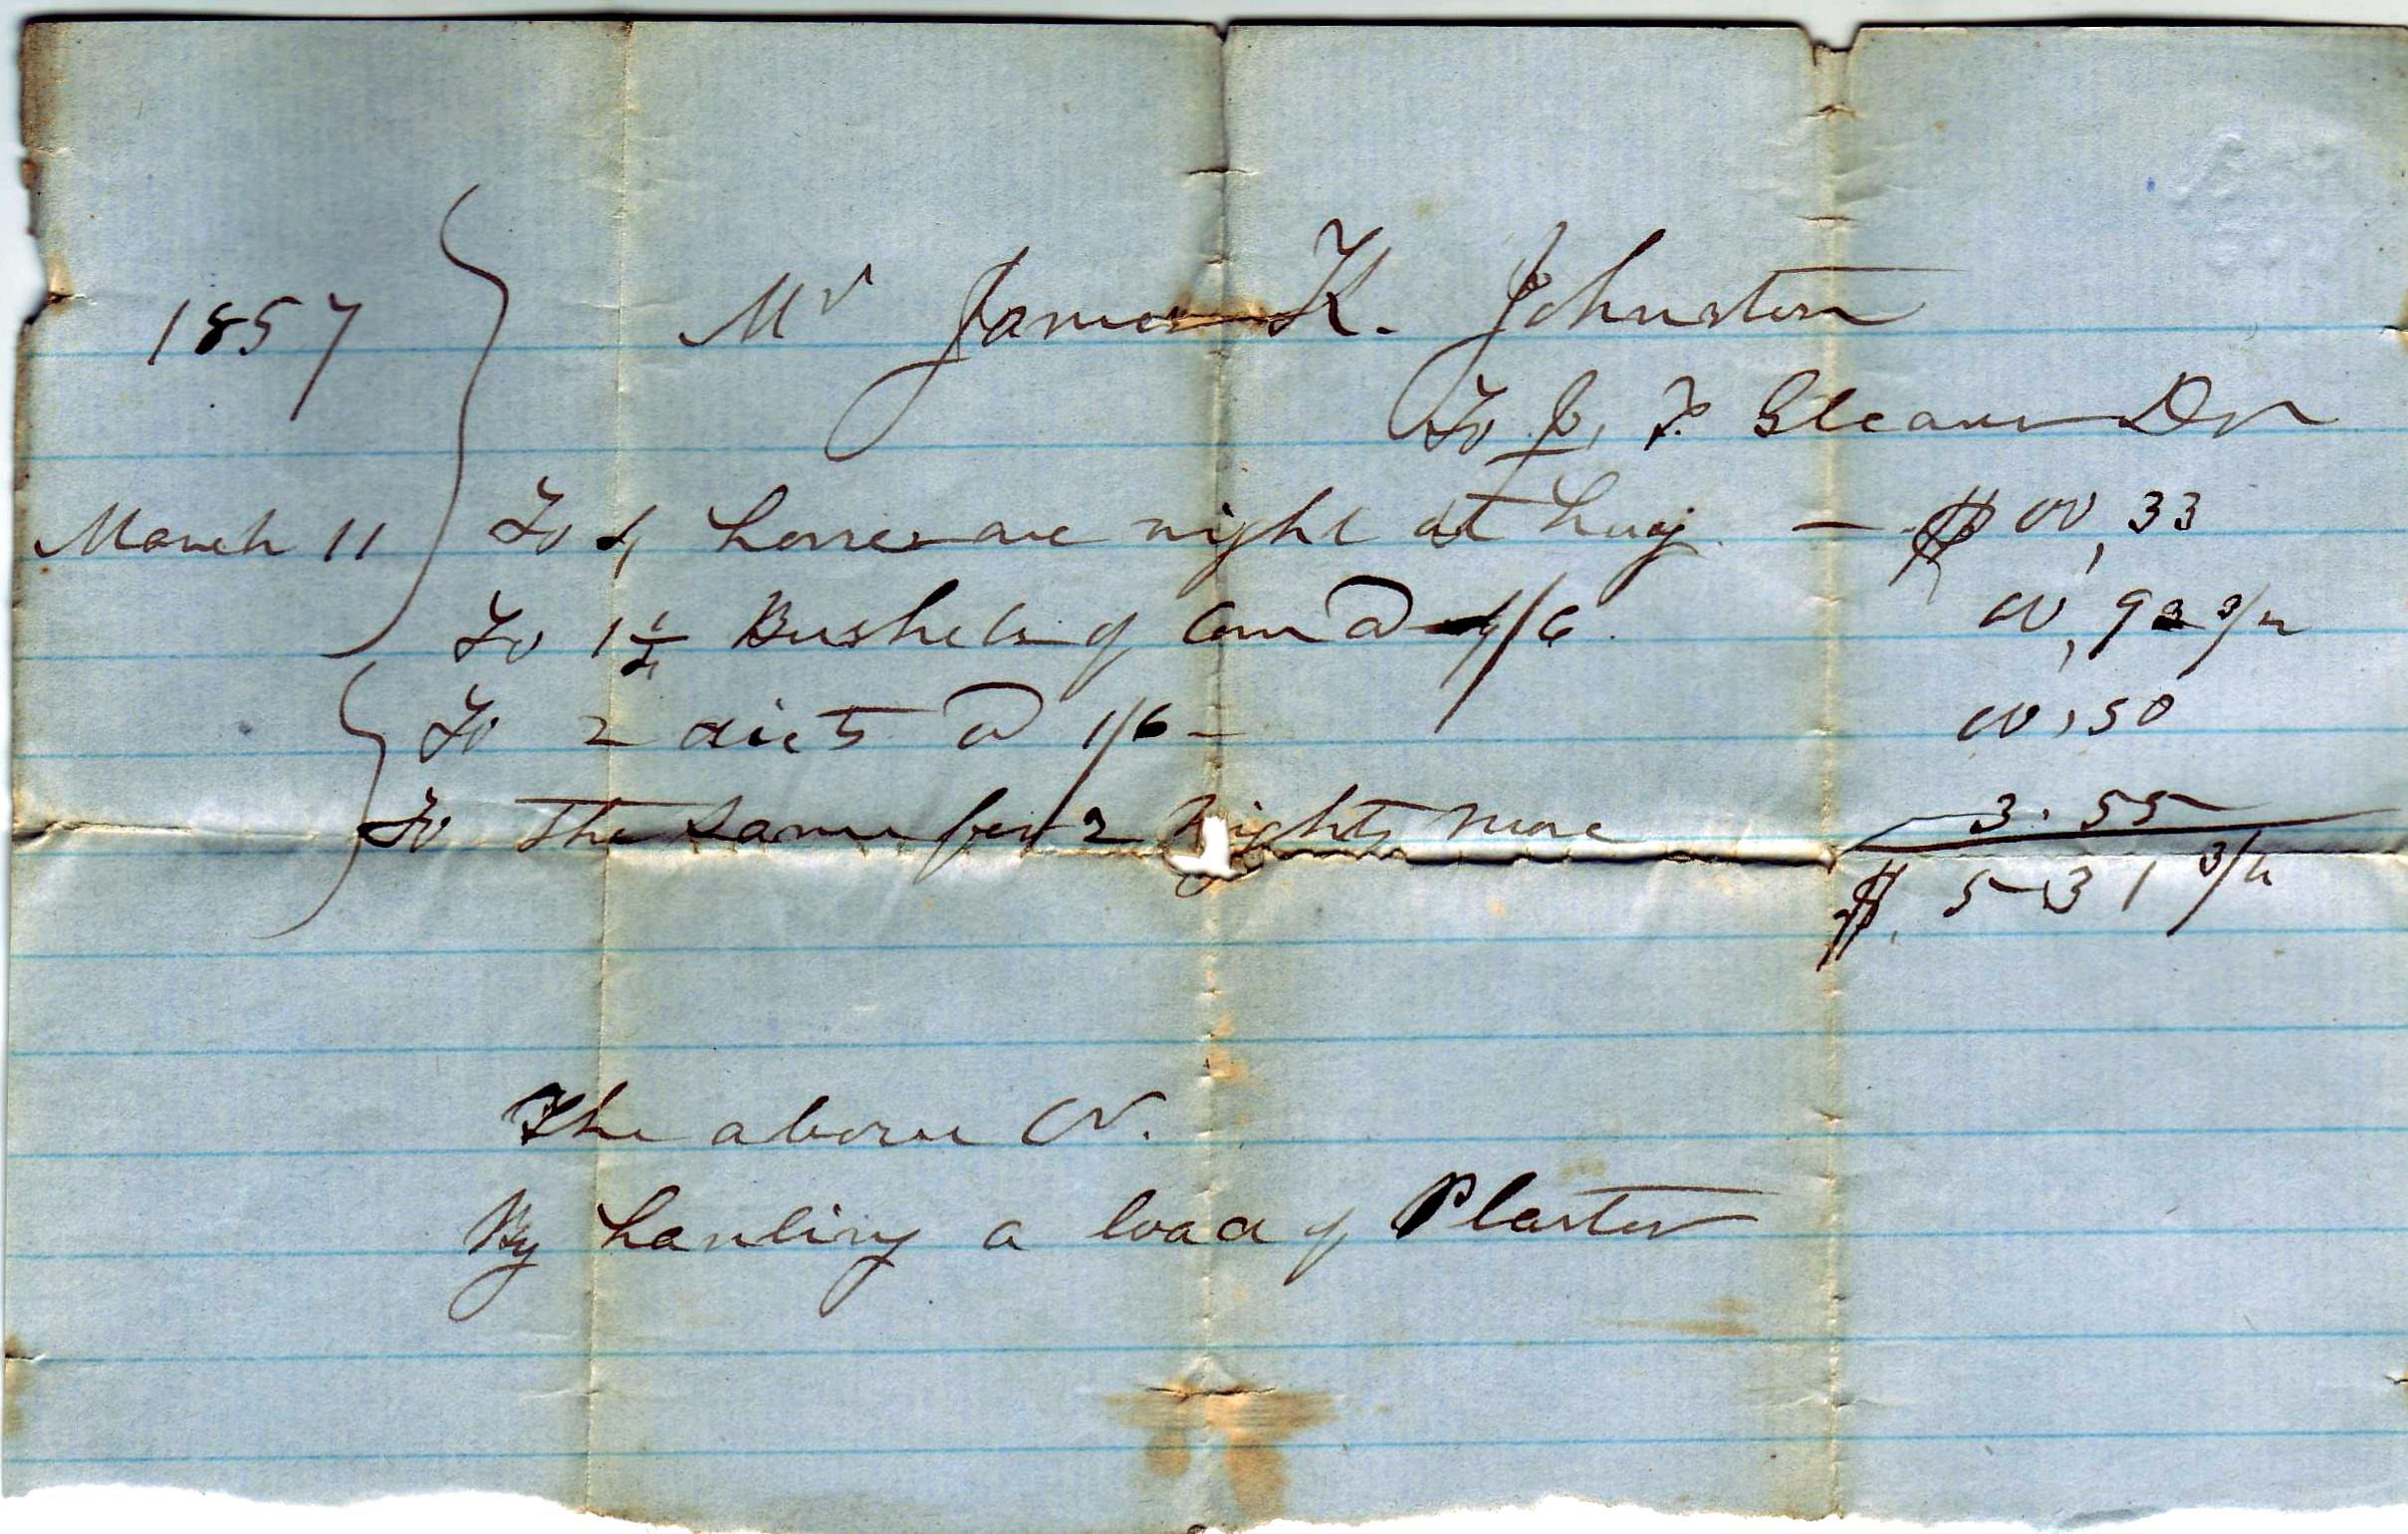 1857 Mr James K. Johnston
To J. F. Gleaves Dr
March 11 To 4 horses one night at hay — $ 00,33
To 1 1/4 Bushels of Corn @ 4/6. 00,93 3/4
To 2 diets @ 1/6 – 00,50
To The Same for 2 Nights more 3.55
$ 5 31 3/4
The above Cr.
By hauling a load of Plaster